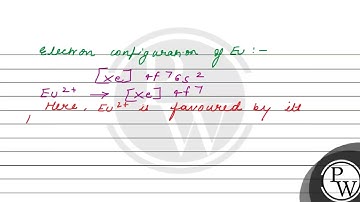 Electron configuration of Eu :-
[Xe] 4f⁷ 6s²
Eu²⁺ → [Xe] 4f⁷
Here, Eu²⁺ is favoured by its
PW